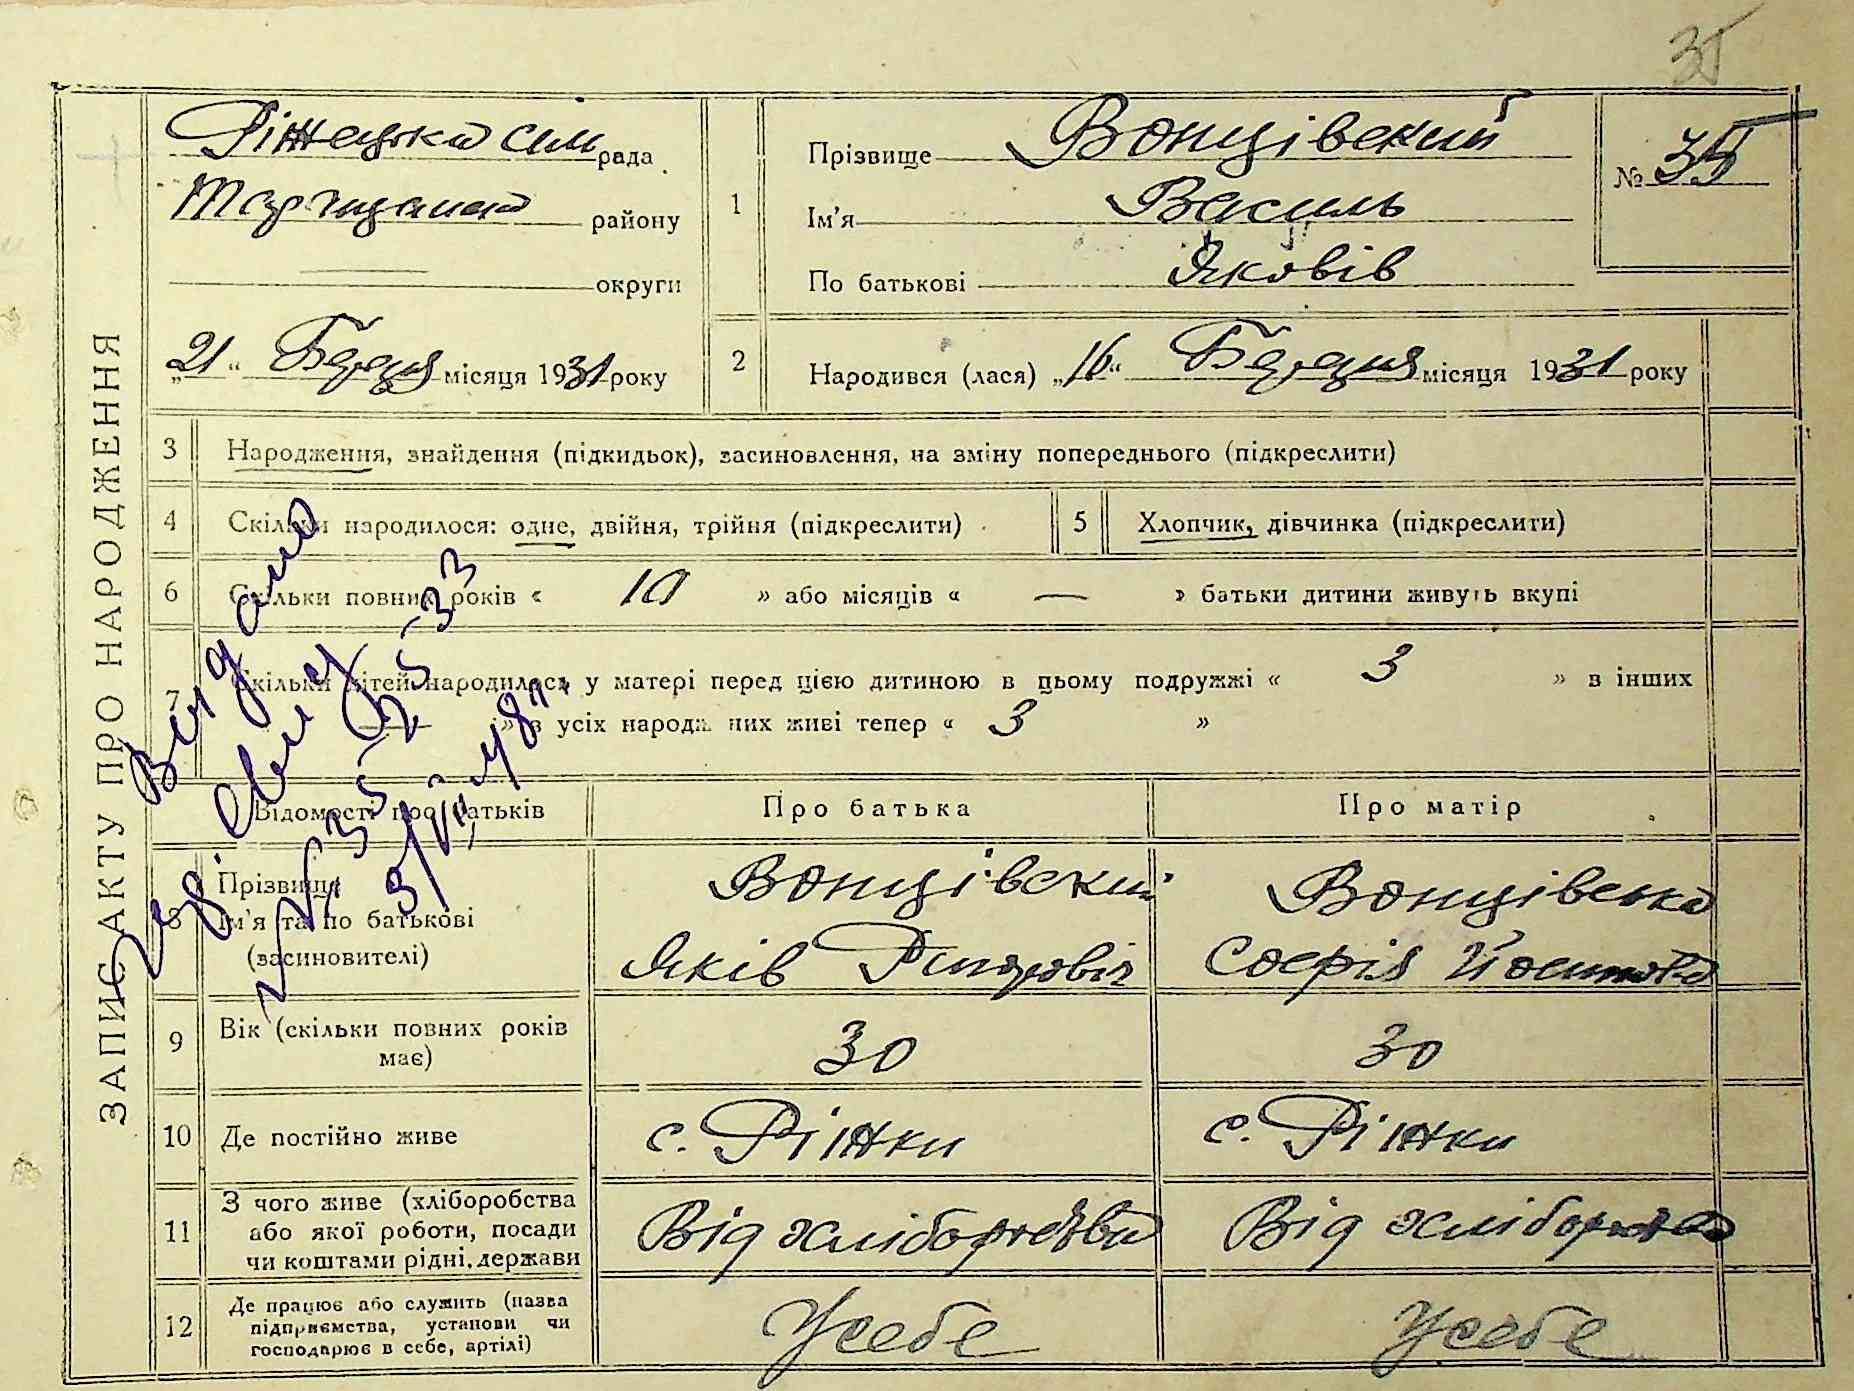 35
ЗАПИС АКТУ ПРО НАРОДЖЕННЯ
Ріжецька сіл рада
району
округи
„21“ Березня місяця 1931 року
1
Прізвище Вонцівский
Ім'я Василь
По батькові Яковів
№ 35
2
Народився (лася) „16“ Березня місяця 1931 року
3 Народження, знайдення (підкидьок), засиновлення, на зміну попереднього (підкреслити)
4 Скільки народилося: одне, двійня, трійня (підкреслити)
5 Хлопчик, дівчинка (підкреслити)
6 Скільки повних років « 10 » або місяців « — » батьки дитини живуть вкупі
7 Скільки дітей народилося у матері перед цією дитиною в цьому подружжі « 3 » в інших
« — » з усіх народж них живі тепер « 3 »
Видано
Свид.
3/VI „48“
Відомості про батьків
Про батька
Про матір
8 Прізвище
ім'я та по батькові
(засиновителі)
Вонцівский
Яків
Вонцівська
Софія Йосипова
9 Вік (скільки повних років
має)
30
30
10 Де постійно живе
с. Ріжки
с. Ріжки
11 З чого живе (хліборобства
або якої роботи, посади
чи коштами рідні, держави
Від хліборобства
Від хліборобства
12 Де працює або служить (назва
підприємства, установи чи
господарює в себе, артілі)
Усебе
Усебе